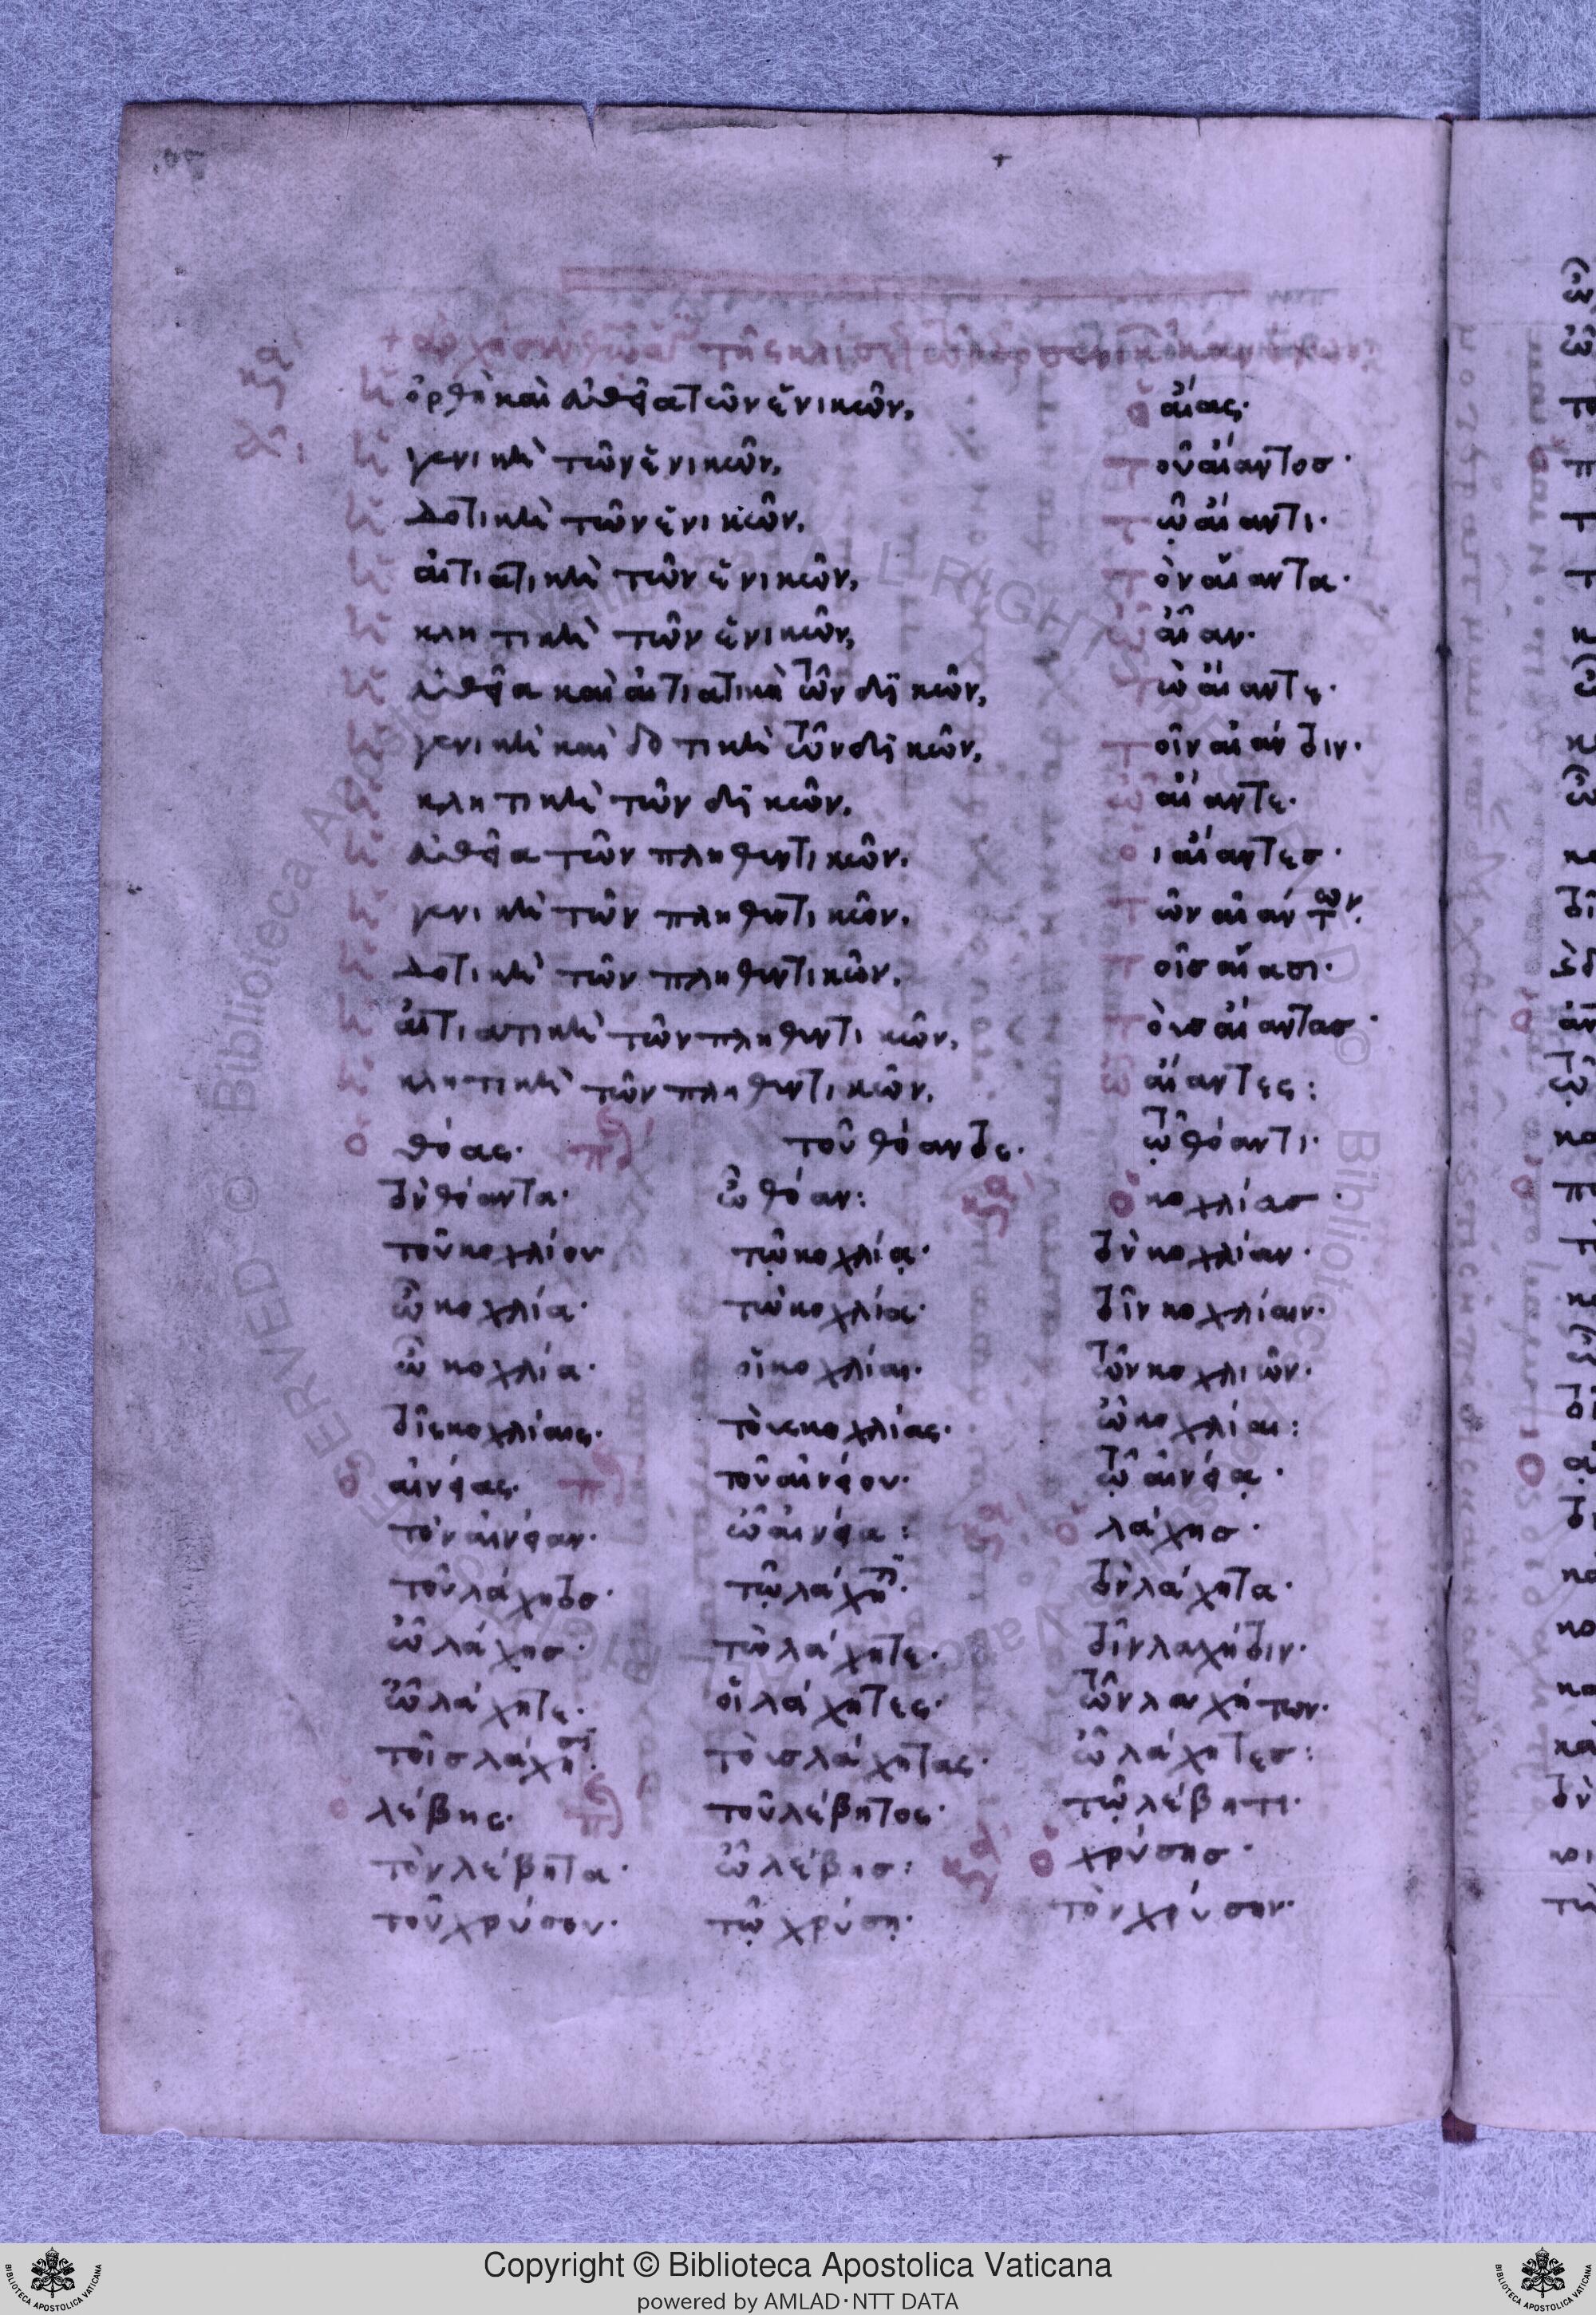 ἡ ὀρθὴ καὶ εὐθεῖα τῶν ἑνικῶν, ὁ αἴας·
ἡ γενικὴ τῶν ἑνικῶν, τοῦ αἴαντοσ·
ἡ δοτικὴ τῶν ἑνικῶν, τῷ αἴαντι·
ἡ αἰτιατικὴ τῶν ἑνικῶν, τὸν αἴαντα·
ἡ κλητικὴ τῶν ἑνικῶν, ὦ αἶαν·
ἡ εὐθεῖα καὶ αἰτιατικὴ τῶν δϊκῶν, τὼ αἴαντε·
ἡ γενικὴ καὶ δοτικὴ τῶν δϊκῶν, τοῖν αἰάντοιν·
ἡ κλητικὴ τῶν δϊκῶν, ὦ αἴαντε·
ἡ εὐθεῖα τῶν πληθυντικῶν, οι αἴαντεσ·
ἡ γενικὴ τῶν πληθυντικῶν, τῶν αἰάντων·
ἡ δοτικὴ τῶν πληθυντικῶν, τοῖσ αἴασι·
ἡ αἰτιατικὴ τῶν πληθυντικῶν, τοὺσ αἴαντασ·
ἡ κλητικὴ τῶν πληθυντικῶν, ὦ αἴαντες:
ὁ θόας· τοῦ θόαντος· τῷ θόαντι·
τὸν θόαντα· ὦ θόαν: ὁ κοχλίασ·
τοῦ κοχλίου· τῷ κοχλίᾳ· τὸν κοχλίαν·
ὦ κοχλία· τὼ κοχλία· τοῖν κοχλίαιν·
ὦ κοχλία· οἱ κοχλίαι· τῶν κοχλιῶν·
τοῖς κοχλίαις· τοὺς κοχλίας· ὦ κοχλίαι:
ὁ αἰνέας· τοῦ αἰνέου· τῷ αἰνέᾳ·
τὸν αἰνέαν· ὦ αἰνέα: ὁ λάχησ·
τοῦ λάχητοσ· τῷ λάχητι· τὸν λάχητα·
ὦ λάχησ· τὼ λάχητε· τοῖν λαχήτοιν·
ὦ λάχητε· οἱ λάχητες· τῶν λαχήτων·
τοῖσ λάχησι· τοὺσ λάχητας· ὦ λάχητεσ:
ὁ λέβης· τοῦ λέβητος· τῷ λέβητι·
τὸν λέβητα· ὦ λέβησ: ὁ χρύσησ·
τοῦ χρύσου· τῷ χρύσῃ· τὸν χρύσην·
Copyright © Biblioteca Apostolica Vaticana
powered by AMLAD·NTT DATA